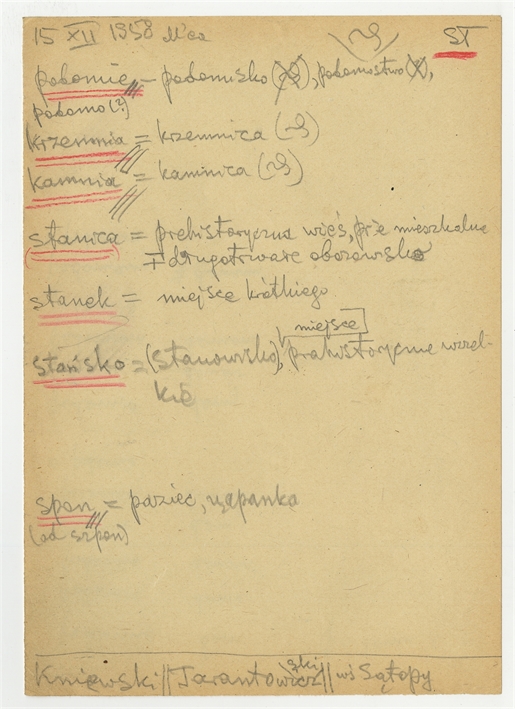 15 XII 1958 M'ca ST
podomie – podomisko, podomostwo,
podomo (?)
krzemnia = krzemnica
kamnia = kamnica
(stanica = prehistoryczna wieś,
± długotrwałe obozowisko
stanek = miejsce krótkiego
miejsce
stańsko = (stanowisko), prahistoryczne wszel-
kie
span = paziec, łupanka
(od szpon)
Kniewski || Tarantowicz || wś Sątopy
ski